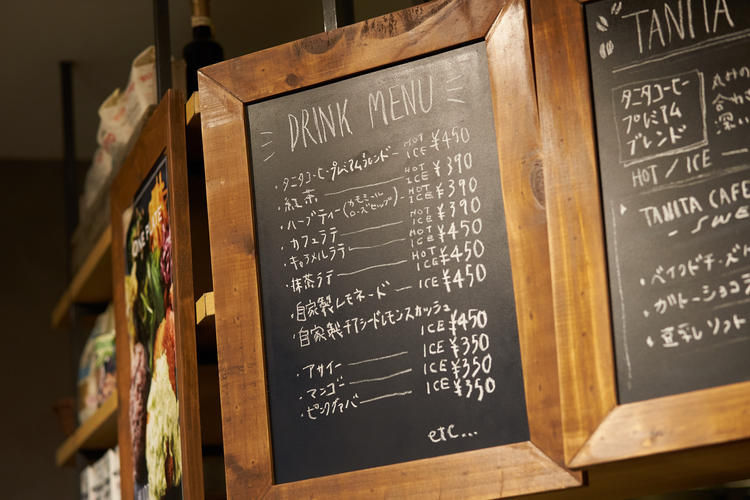 DRINK MENU
・タニタコーヒープレミアムブレンド HOT ICE ¥450
・紅茶 HOT ICE ¥390
・ハーブティー(カモミール ローズヒップ) HOT ICE ¥390
・カフェラテ HOT ICE ¥390
・キャラメルラテ HOT ICE ¥450
・抹茶ラテ HOT ICE ¥450
・自家製レモネード HOT ICE ¥450
・自家製チアシードレモンスカッシュ
ICE ¥450
・アサイー ICE ¥350
・マンゴー ICE ¥350
・ピンクグァバー ICE ¥350
etc...
TANITA
タニタコーヒー
プレミアム
ブレンド
HOT / ICE
TANITA CAFE
- SWE
・ベイクドチーズ
・ガトーショコラ
・豆乳ソフト